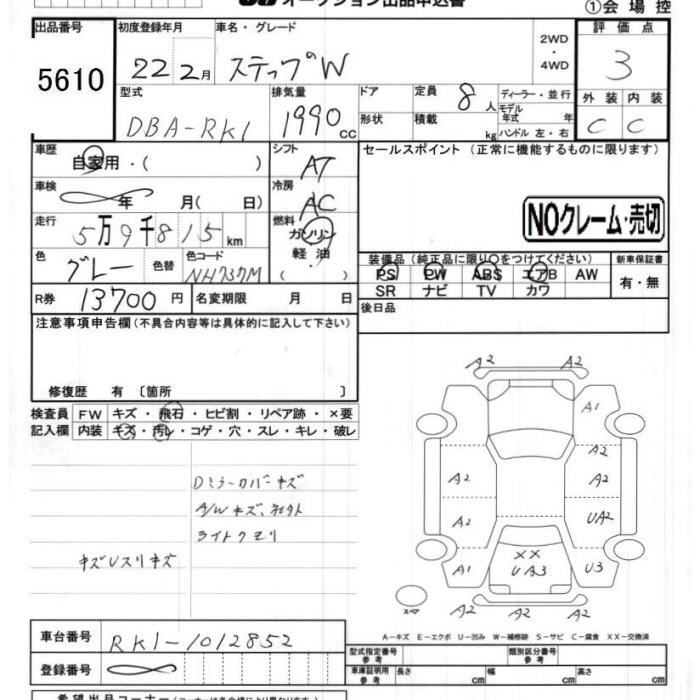 オークション出品申込書
①会場控
出品番号 初度登録年月 車名・グレード 2WD・4WD 評価点
5610 22 2月 ステップW 3
型式 排気量 ドア 定員 8人 ディーラー・並行 外装 内装
DBA-RK1 1990cc 形状 積載 kg モデル年式 年 C C
ハンドル 左・右
車歴 自家用・( ) シフト AT セールスポイント(正常に機能するものに限ります)
車検 年 月( 日) 冷房 AC
走行 5万9千815km 燃料 ガソリン 軽油 ( ) NOクレーム・売切
色 グレー 色替 色コード NH737M 装備品(純正品に限り○をつけてください) 新車保証書
PS PW ABS エアB AW 有・無
R券 13700円 名変期限 月 日 SR ナビ TV カワ
注意事項申告欄(不具合内容等は具体的に記入して下さい) 後日品
修復歴 有〔箇所 〕
検査員 FW キズ・飛石・ヒビ割・リペア跡・×要
記入欄 内装 キズ・汚レ・コゲ・穴・スレ・キレ・破レ
Dミラーカバーキズ
A/Wキズ、
ライトクモリ
キズUスリキズ
A2 A2
A1
A2 A2
A2 UA2
XX
A1 UA3 U3
A2 A2 A2
スペア
A-キズ E-エクボ U-凹み W-補修跡 S-サビ C-腐食 XX-交換済
車台番号 RK1-1012852 型式指定番号 参考 類別区分番号 参考
登録番号 車庫証明用 参考 長さ cm 幅 cm 高さ cm
希望出品コーナー